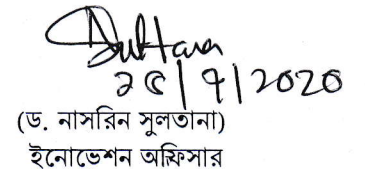 Sultana
২৫/৭/2020
(ড. নাসরিন সুলতানা)
ইনোভেশন অফিসার